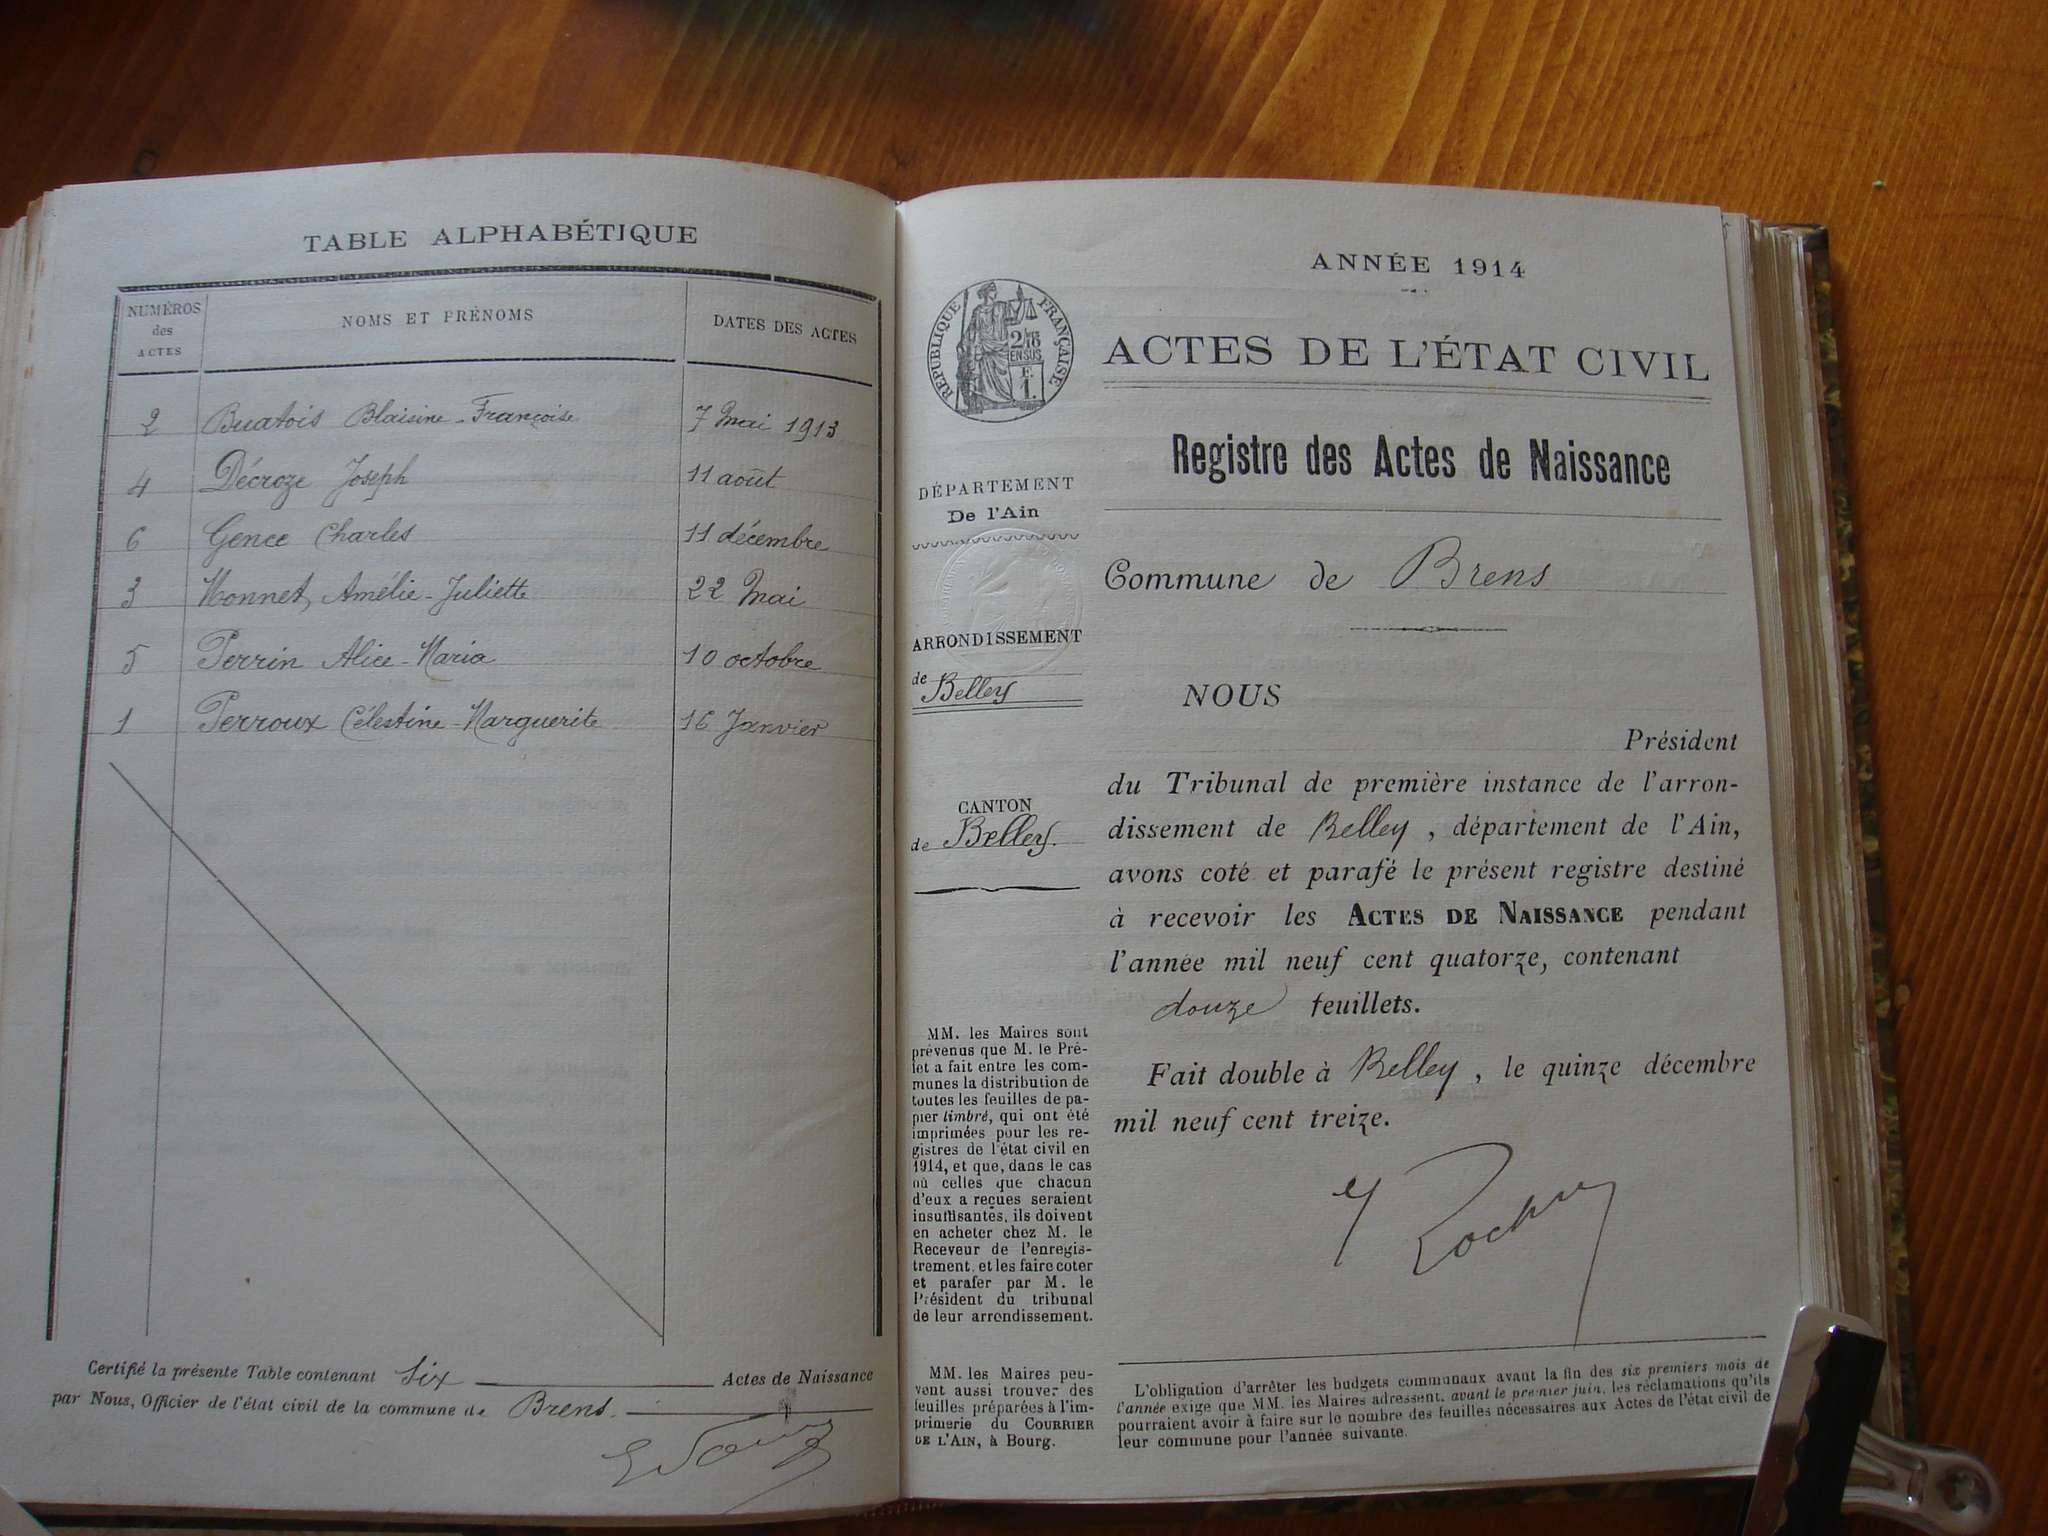 TABLE ALPHABÉTIQUE
NUMÉROS des ACTES
NOMS ET PRÉNOMS
DATES DES ACTES
2 Buatois Blaisine-Françoise 7 Mai 1913
4 Décroze Joseph 11 août
6 Gence Charles 11 décembre
3 Monnet, Amélie-Juliette 22 Mai
5 Perrin Alice-Maria 10 octobre
1 Perroux Célestine-Marguerite 16 Janvier
Certifié la présente Table contenant Six Actes de Naissance
par Nous, Officier de l'état civil de la commune de Brens.
ANNÉE 1914
RÉPUBLIQUE FRANÇAISE
ACTES DE L'ÉTAT CIVIL
Registre des Actes de Naissance
DÉPARTEMENT
De l'Ain
Commune de Brens
ARRONDISSEMENT
de Belley
CANTON
de Belley.
NOUS
Président
du Tribunal de première instance de l'arron-
dissement de Belley, département de l'Ain,
avons coté et parafé le présent registre destiné
à recevoir les ACTES DE NAISSANCE pendant
l'année mil neuf cent quatorze, contenant
douze feuillets.
Fait double à Belley, le quinze décembre
mil neuf cent treize.
MM. les Maires sont
prévenus que M. le Pré-
fet a fait entre les com-
munes la distribution de
toutes les feuilles de pa-
pier timbré, qui ont été
imprimées pour les re-
gistres de l'état civil en
1914, et que, dans le cas
où celles que chacun
d'eux a reçues seraient
insuffisantes, ils doivent
en acheter chez M. le
Receveur de l'enregis-
trement, et les faire coter
et parafer par M. le
Président du tribunal
de leur arrondissement.
MM. les Maires peu-
vent aussi trouver des
feuilles préparées à l'im-
primerie du COURRIER
DE L'AIN, à Bourg.
L'obligation d'arrêter les budgets communaux avant la fin des six premiers mois de
l'année exige que MM. les Maires adressent, avant le premier juin, les réclamations qu'ils
pourraient avoir à faire sur le nombre des feuilles nécessaires aux Actes de l'état civil de
leur commune pour l'année suivante.